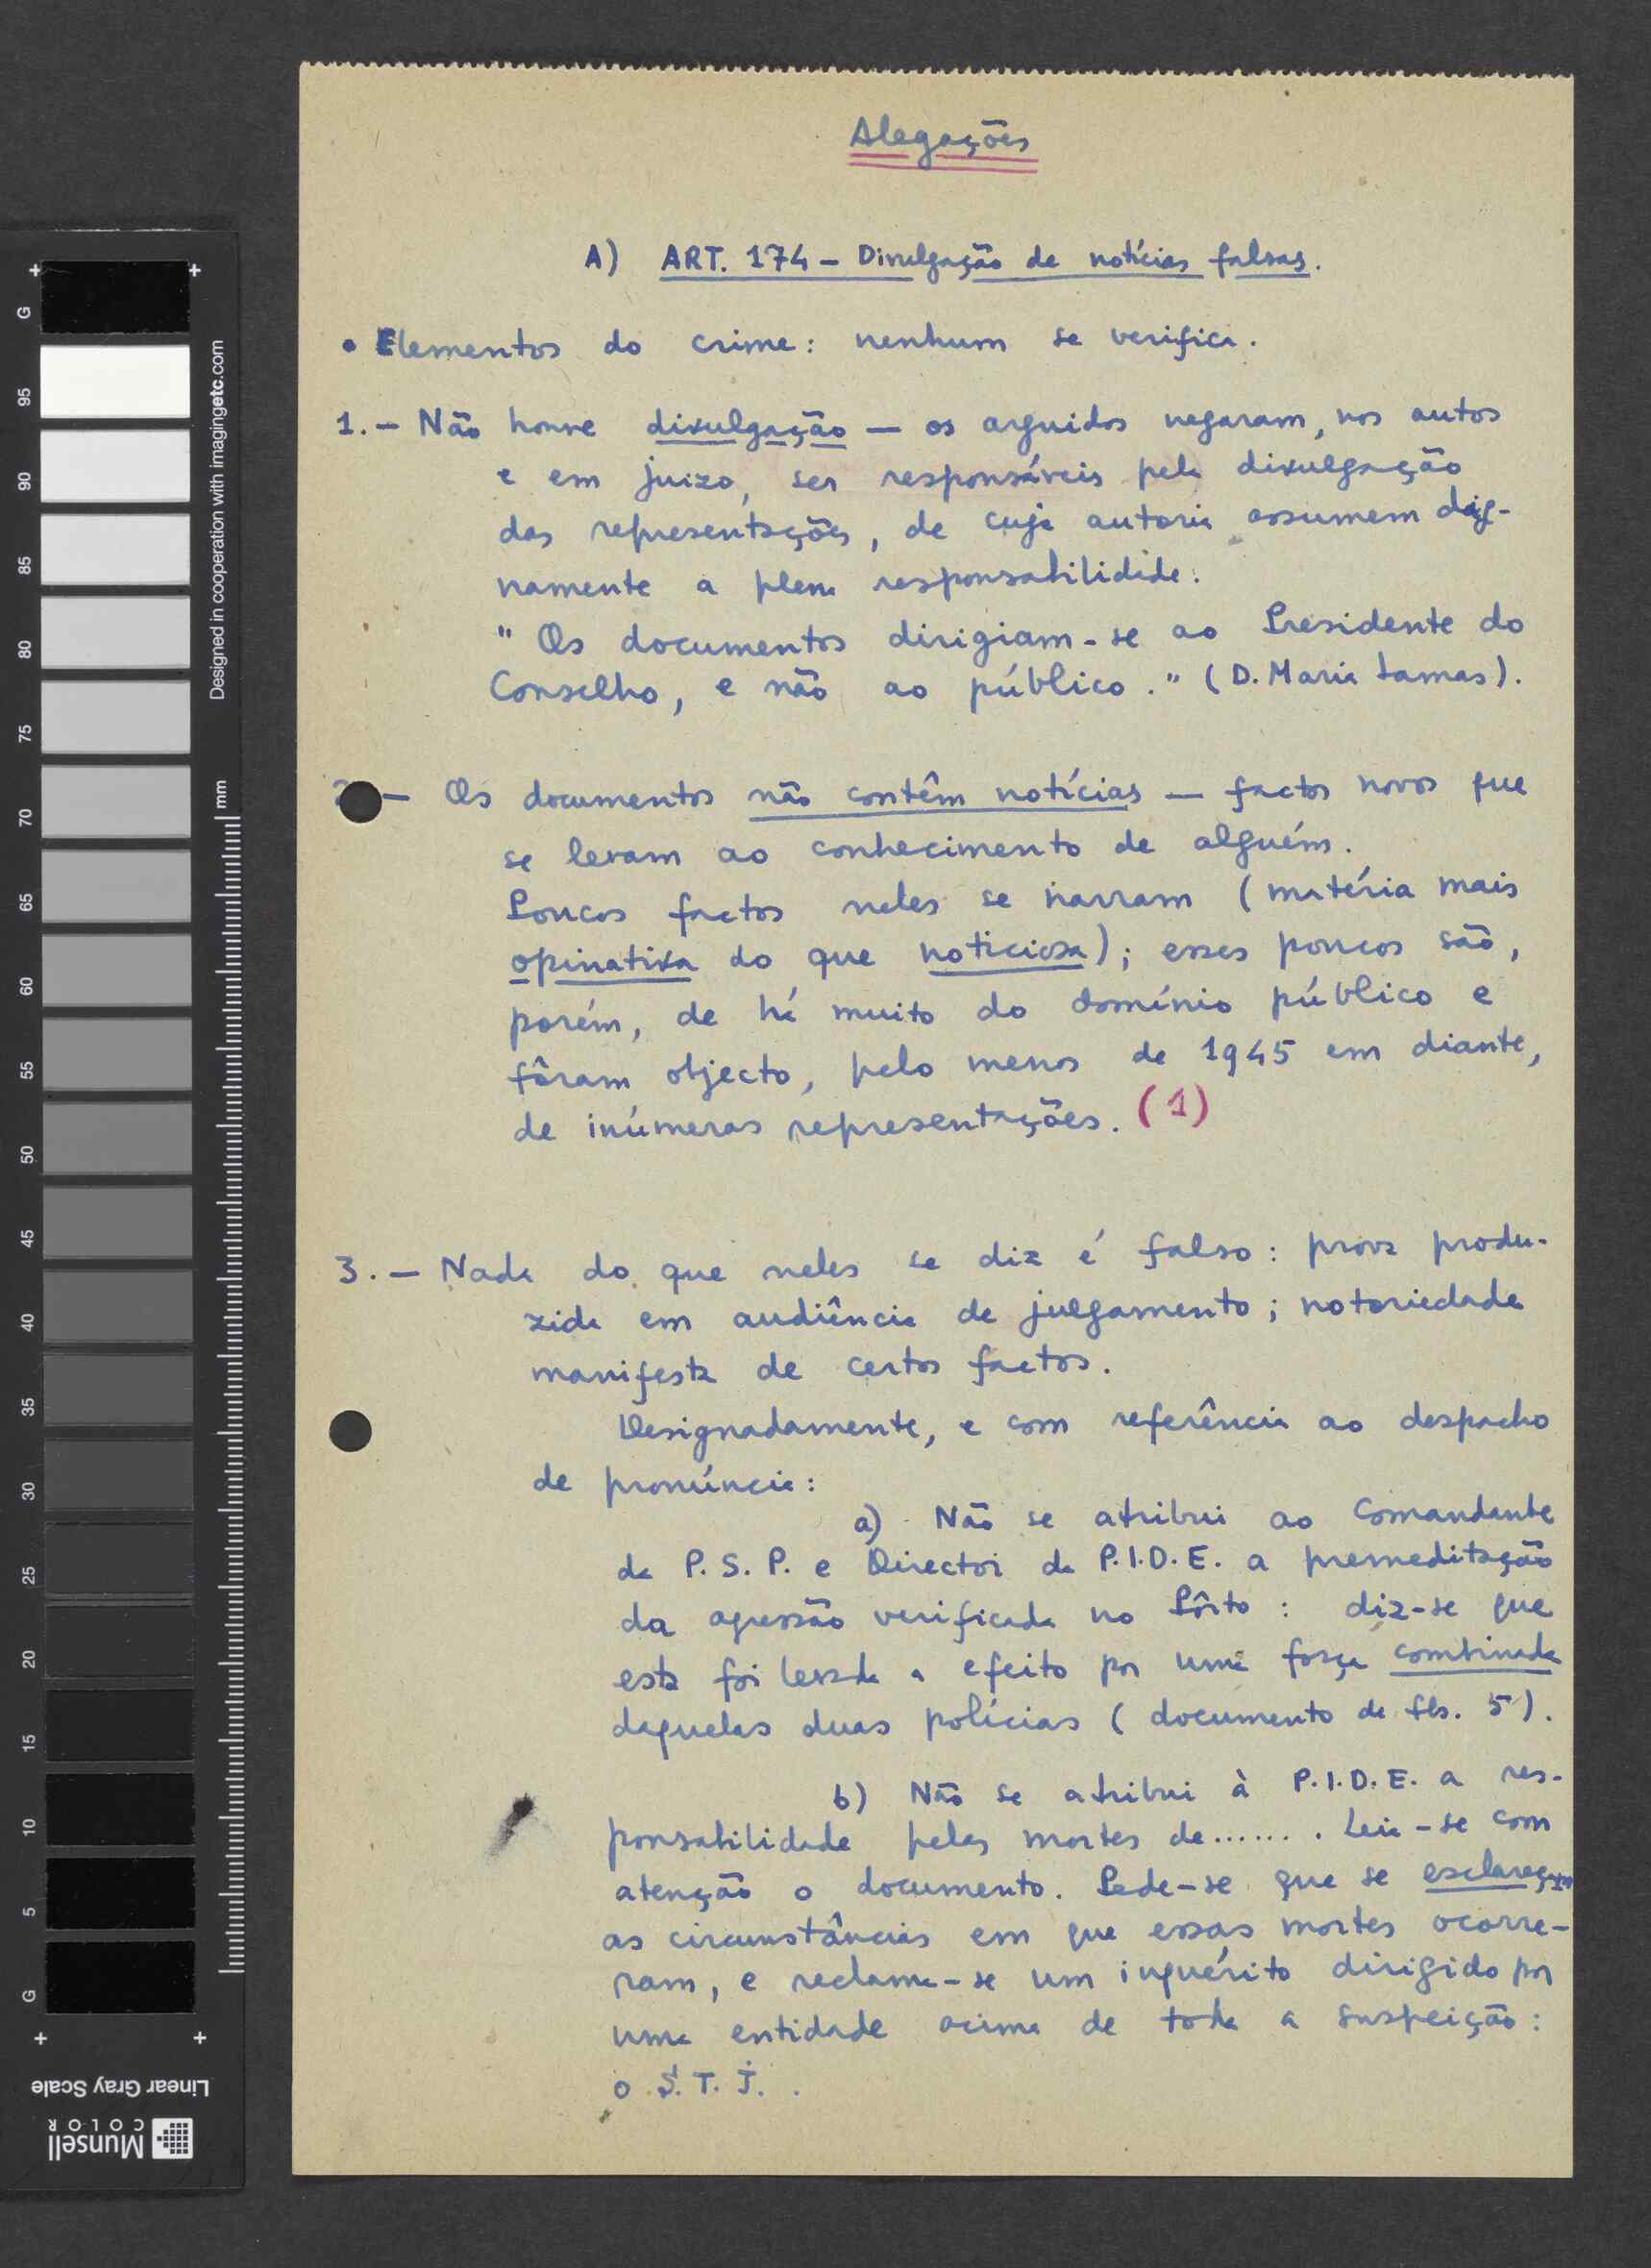 Alegações
A) ART. 174 – Divulgação de notícias falsas.
• Elementos do crime: nenhum se verifica.
1. – Não houve divulgação — os arguidos negaram, nos autos
e em juízo, ser responsáveis pela divulgação
das representações, de cuja autoria assumem dig-
namente a plena responsabilidade.
" Os documentos dirigiam-se ao Presidente do
Conselho, e não ao público." (D. Maria Lamas).
2 – Os documentos não contêm notícias — factos novos que
se levam ao conhecimento de alguém.
Poucos factos neles se narram (matéria mais
opinativa do que noticiosa); esses poucos são,
porém, de há muito do domínio público e
fôram objecto, pelo menos de 1945 em diante,
de inúmeras representações. (1)
3. – Nada do que neles se diz é falso: prova produ-
zida em audiência de julgamento; notoriedade
manifesta de certos factos.
Designadamente, e com referência ao despacho
de pronúncia:
a) Não se atribui ao Comandante
da P. S. P. e Director da P.I.D.E. a premeditação
da agressão verificada no Pôrto : diz-se que
esta foi levada a efeito por uma força combinada
daquelas duas polícias ( documento de fls. 5 ).
b) Não se atribui à P.I.D.E. a res-
ponsabilidade pelas mortes de....... Leia-se com
atenção o documento. Pede-se que se esclareçam
as circunstâncias em que essas mortes ocorre-
ram, e reclama-se um inquérito dirigido por
uma entidade acima de toda a suspeição :
o S. T. J. .
G
95
90
85
80
75
70
65
60
55
50
45
40
35
30
25
20
15
10
5
G
Designed in cooperation with imagingetc.com
mm
Linear Gray Scale
Munsell
COLOR